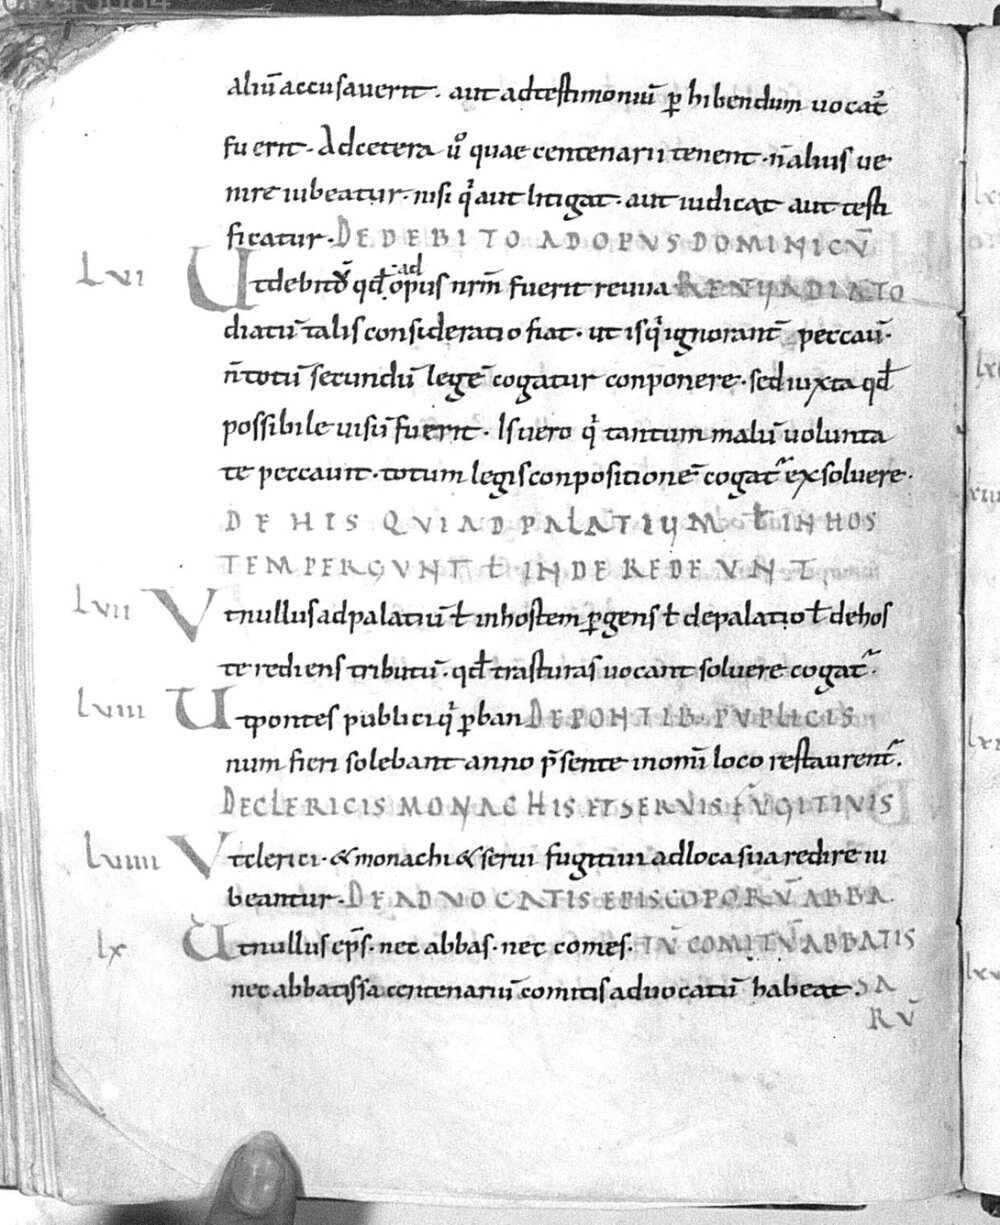 aliū accusaverit. aut ad testimoniū ꝑhibendum uocat᷒
fuerit. Ad cetera ū quae centenarii tenent. n̄ alius ue
nire iubeatur. nisi qͥ aut litigat. aut iudicat aut testi
ficatur. DE DEBITO AD OPUS DOMINICŪ
LVI Ut debitū qđ ad opus nrm̄ fuerit reuua RENUADIATO
diatū talis consideratio fiat. ut is qͥ ignorant̄ peccaū.
n̄ totū secundū legē cogatur conponere. sed iuxta qđ
possibile uisū fuerit. Is uero qͥ tantum malū uolunta
te peccauit. totum legis conpositionē cogat᷒ exsoluere.
DE HIS QUI AD PALATIUM ł IN HOS
TEM PERGUNT ł INDE REDEUNT
LVII Ut nullus ad palatiū ł in hostem ꝑgens ł de palatio ł de hos
te rediens tributū. qđ trasturas uocant soluere cogat᷒.
LVIII Ut pontes publici qͥ ꝑ ban DE PONTIB. PUPLICIS
num fieri solebant anno p̄sente in om̄i loco restaurent᷒.
DE CLERICIS MONACHIS ET SERVIS FUGITIVIS
LVIIII Ut clerici. & monachi & serui fugitiui ad loca sua redire iu
beantur. DE ADVOCATIS EPISCOPORŪ ABBA
LX Ut nullus ep̄s. nec abbas. nec comes. TŪ COMITŪ ABBATIS
nec abbatissa centenariū comitis aduocatū habeat. SA
RŪ